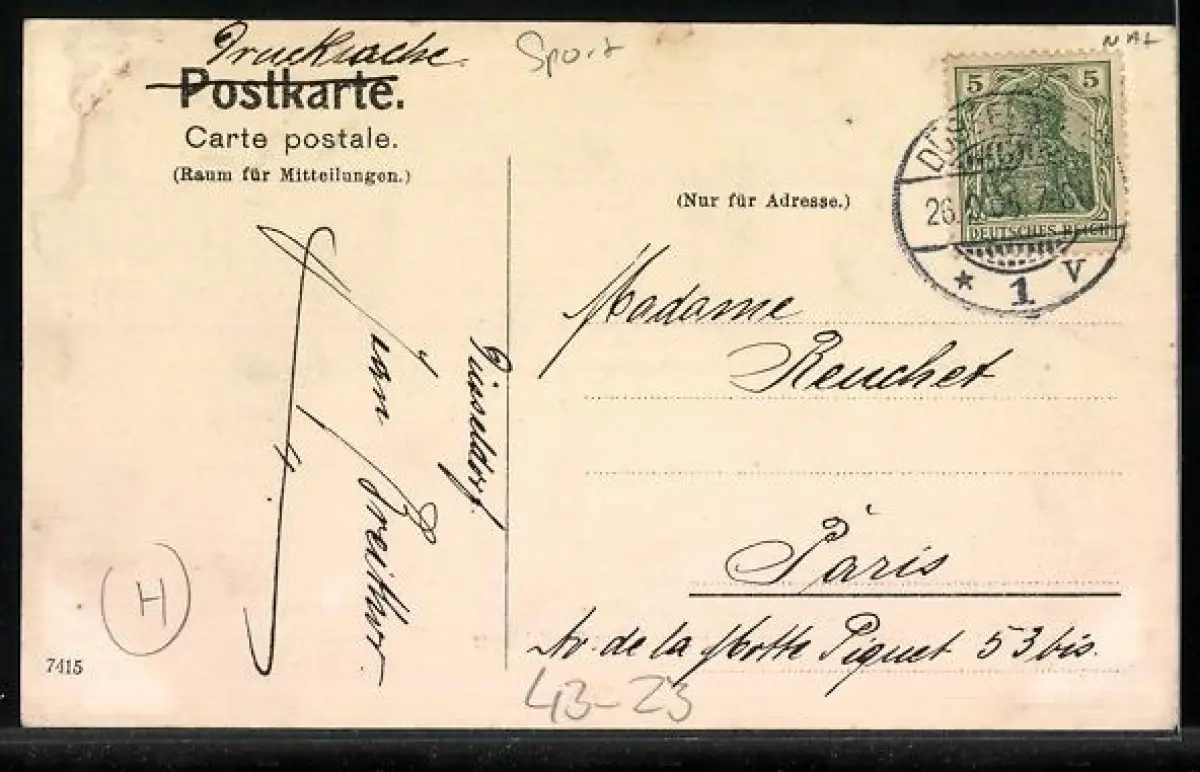 Drucksache.
Postkarte.
Carte postale.
(Raum für Mitteilungen.)
Sport
NAL
5 5
DEUTSCHES REICH
26.
* 1 V
(Nur für Adresse.)
Düsseldorf.
von
Madame
Reuchet
Paris
Av. de la Motte Piquet 53 bis.
H
7415
43-23